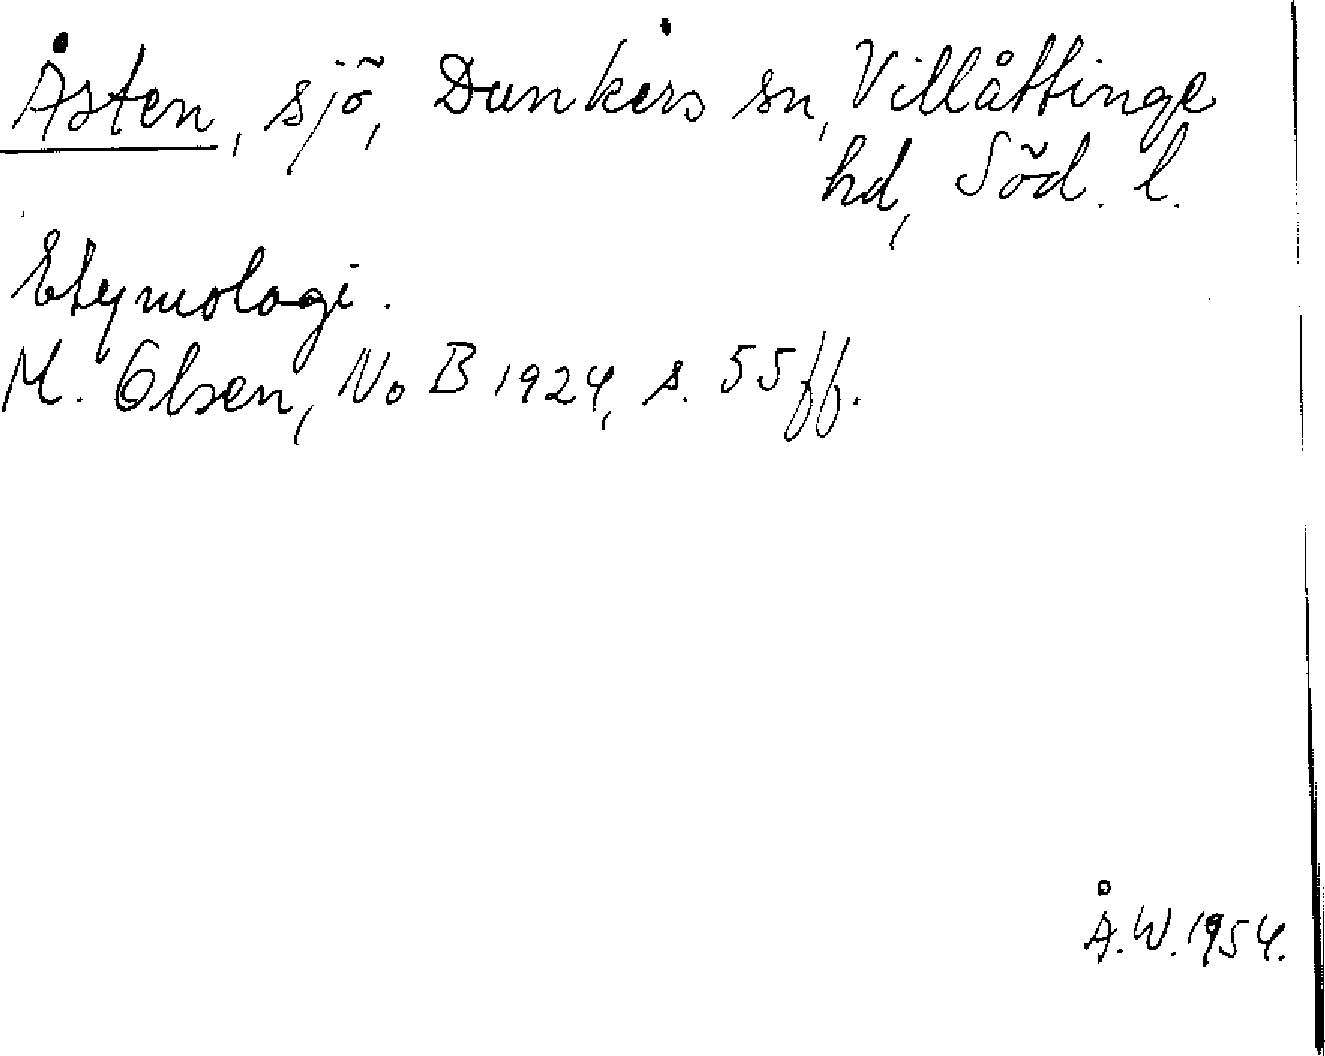 Åsten, sjö, Dunkers sn, Villåttinge
hd, Söd. l.
Etymologi.
M. Olsen, No B 1924, s. 55 ff.
Å.W. 1954.